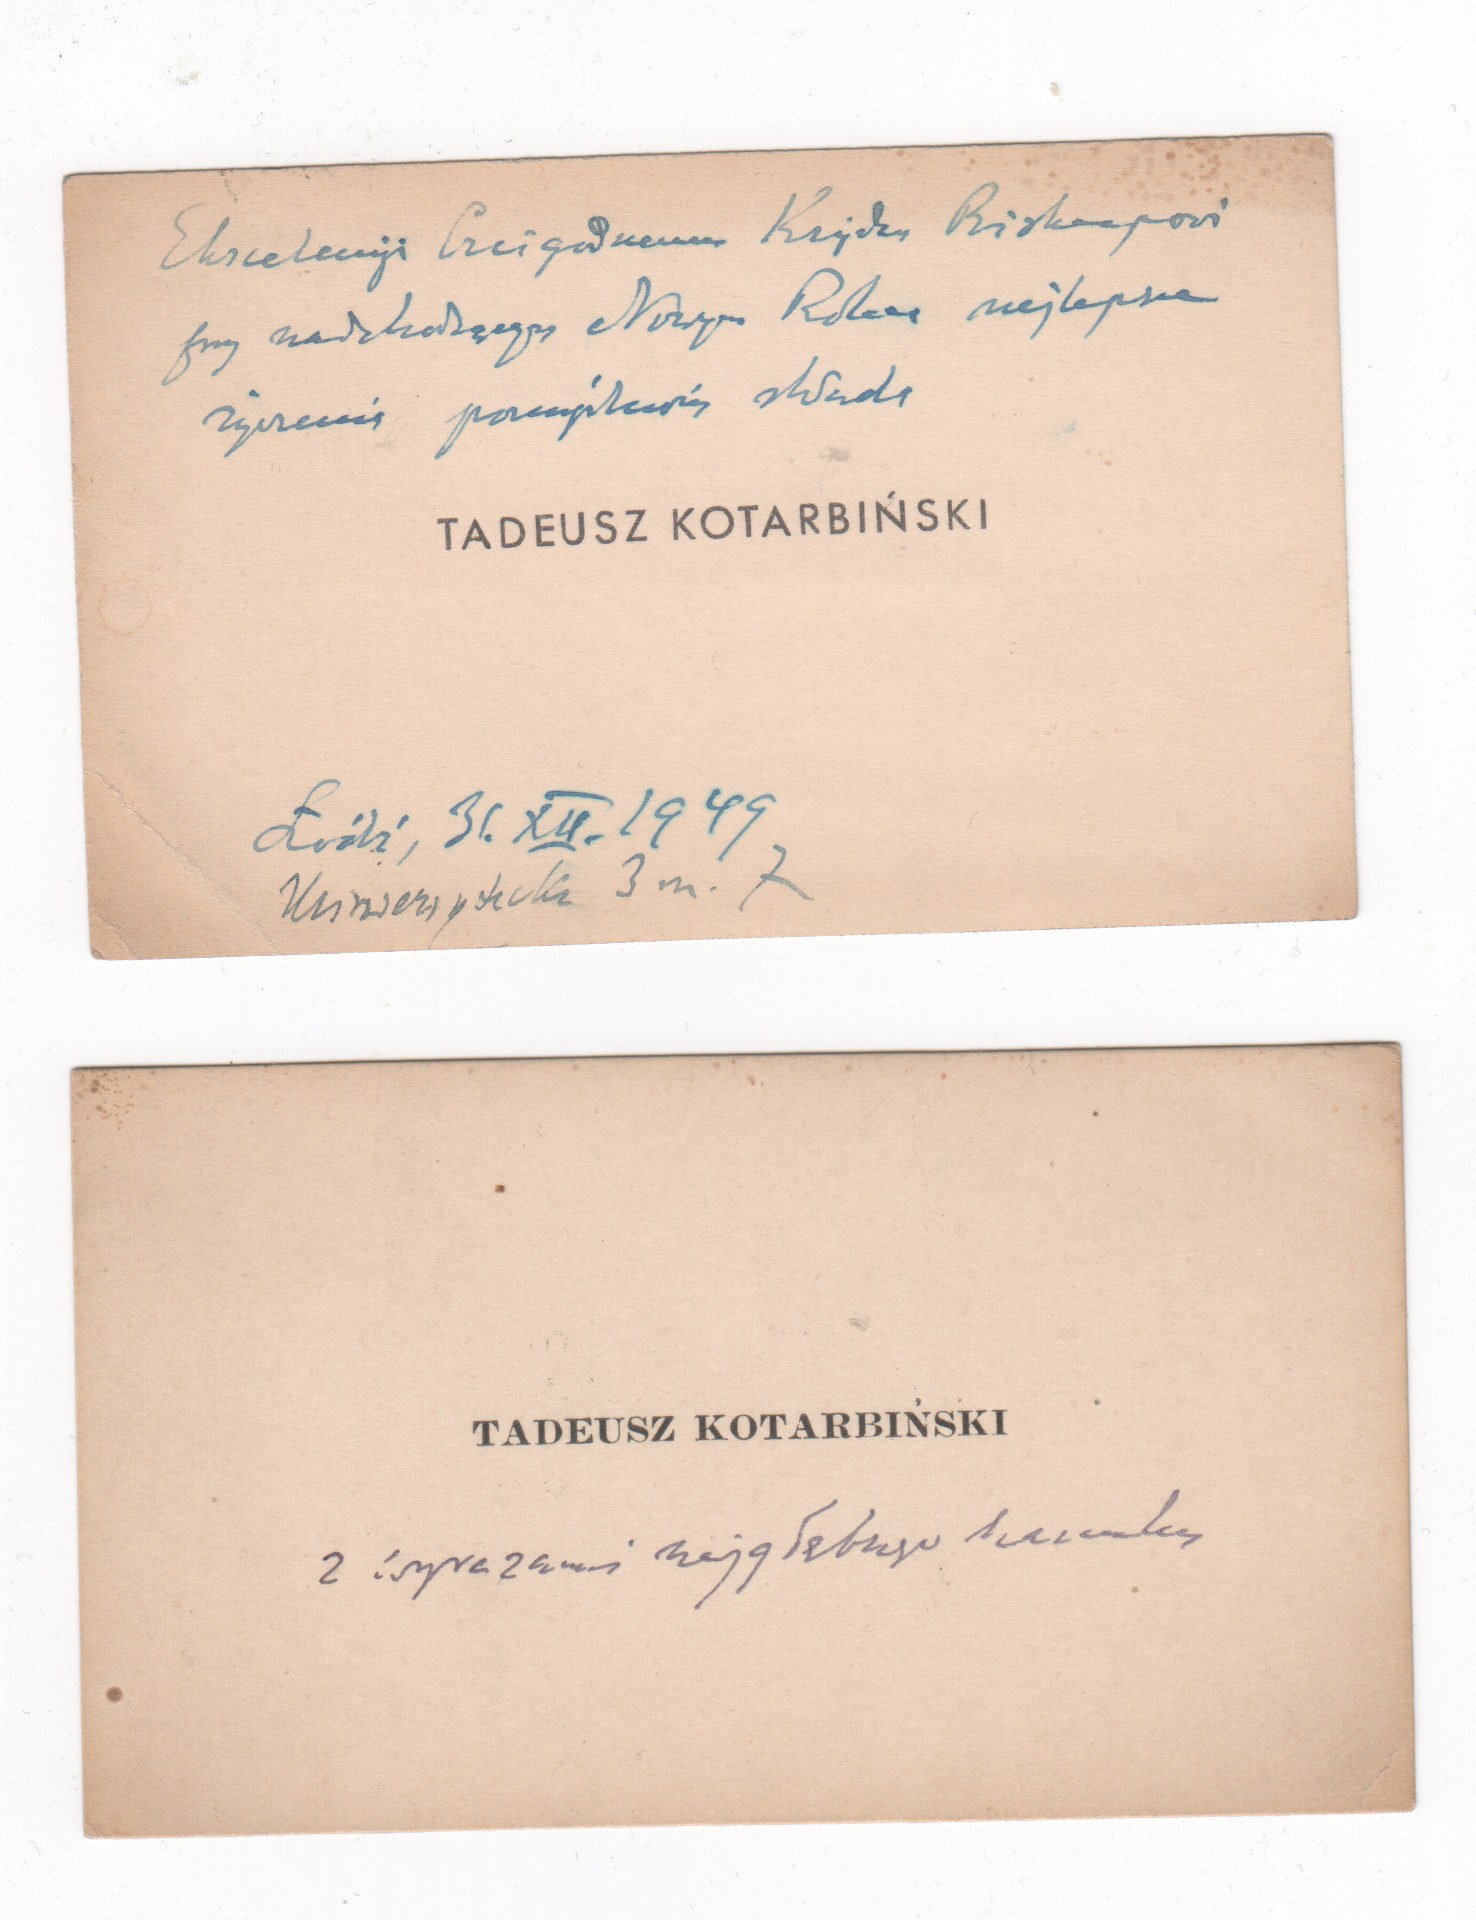 Ekscelencji Czcigodnemu Księdzu Biskupowi
przy nadchodzącym Nowym Roku najlepsze
życzenia pomyślności składa
TADEUSZ KOTARBIŃSKI
Łódź, 31. XII. 1949
Uniwersytecka 3 m. 7
TADEUSZ KOTARBIŃSKI
z wyrazami najgłębszego szacunku